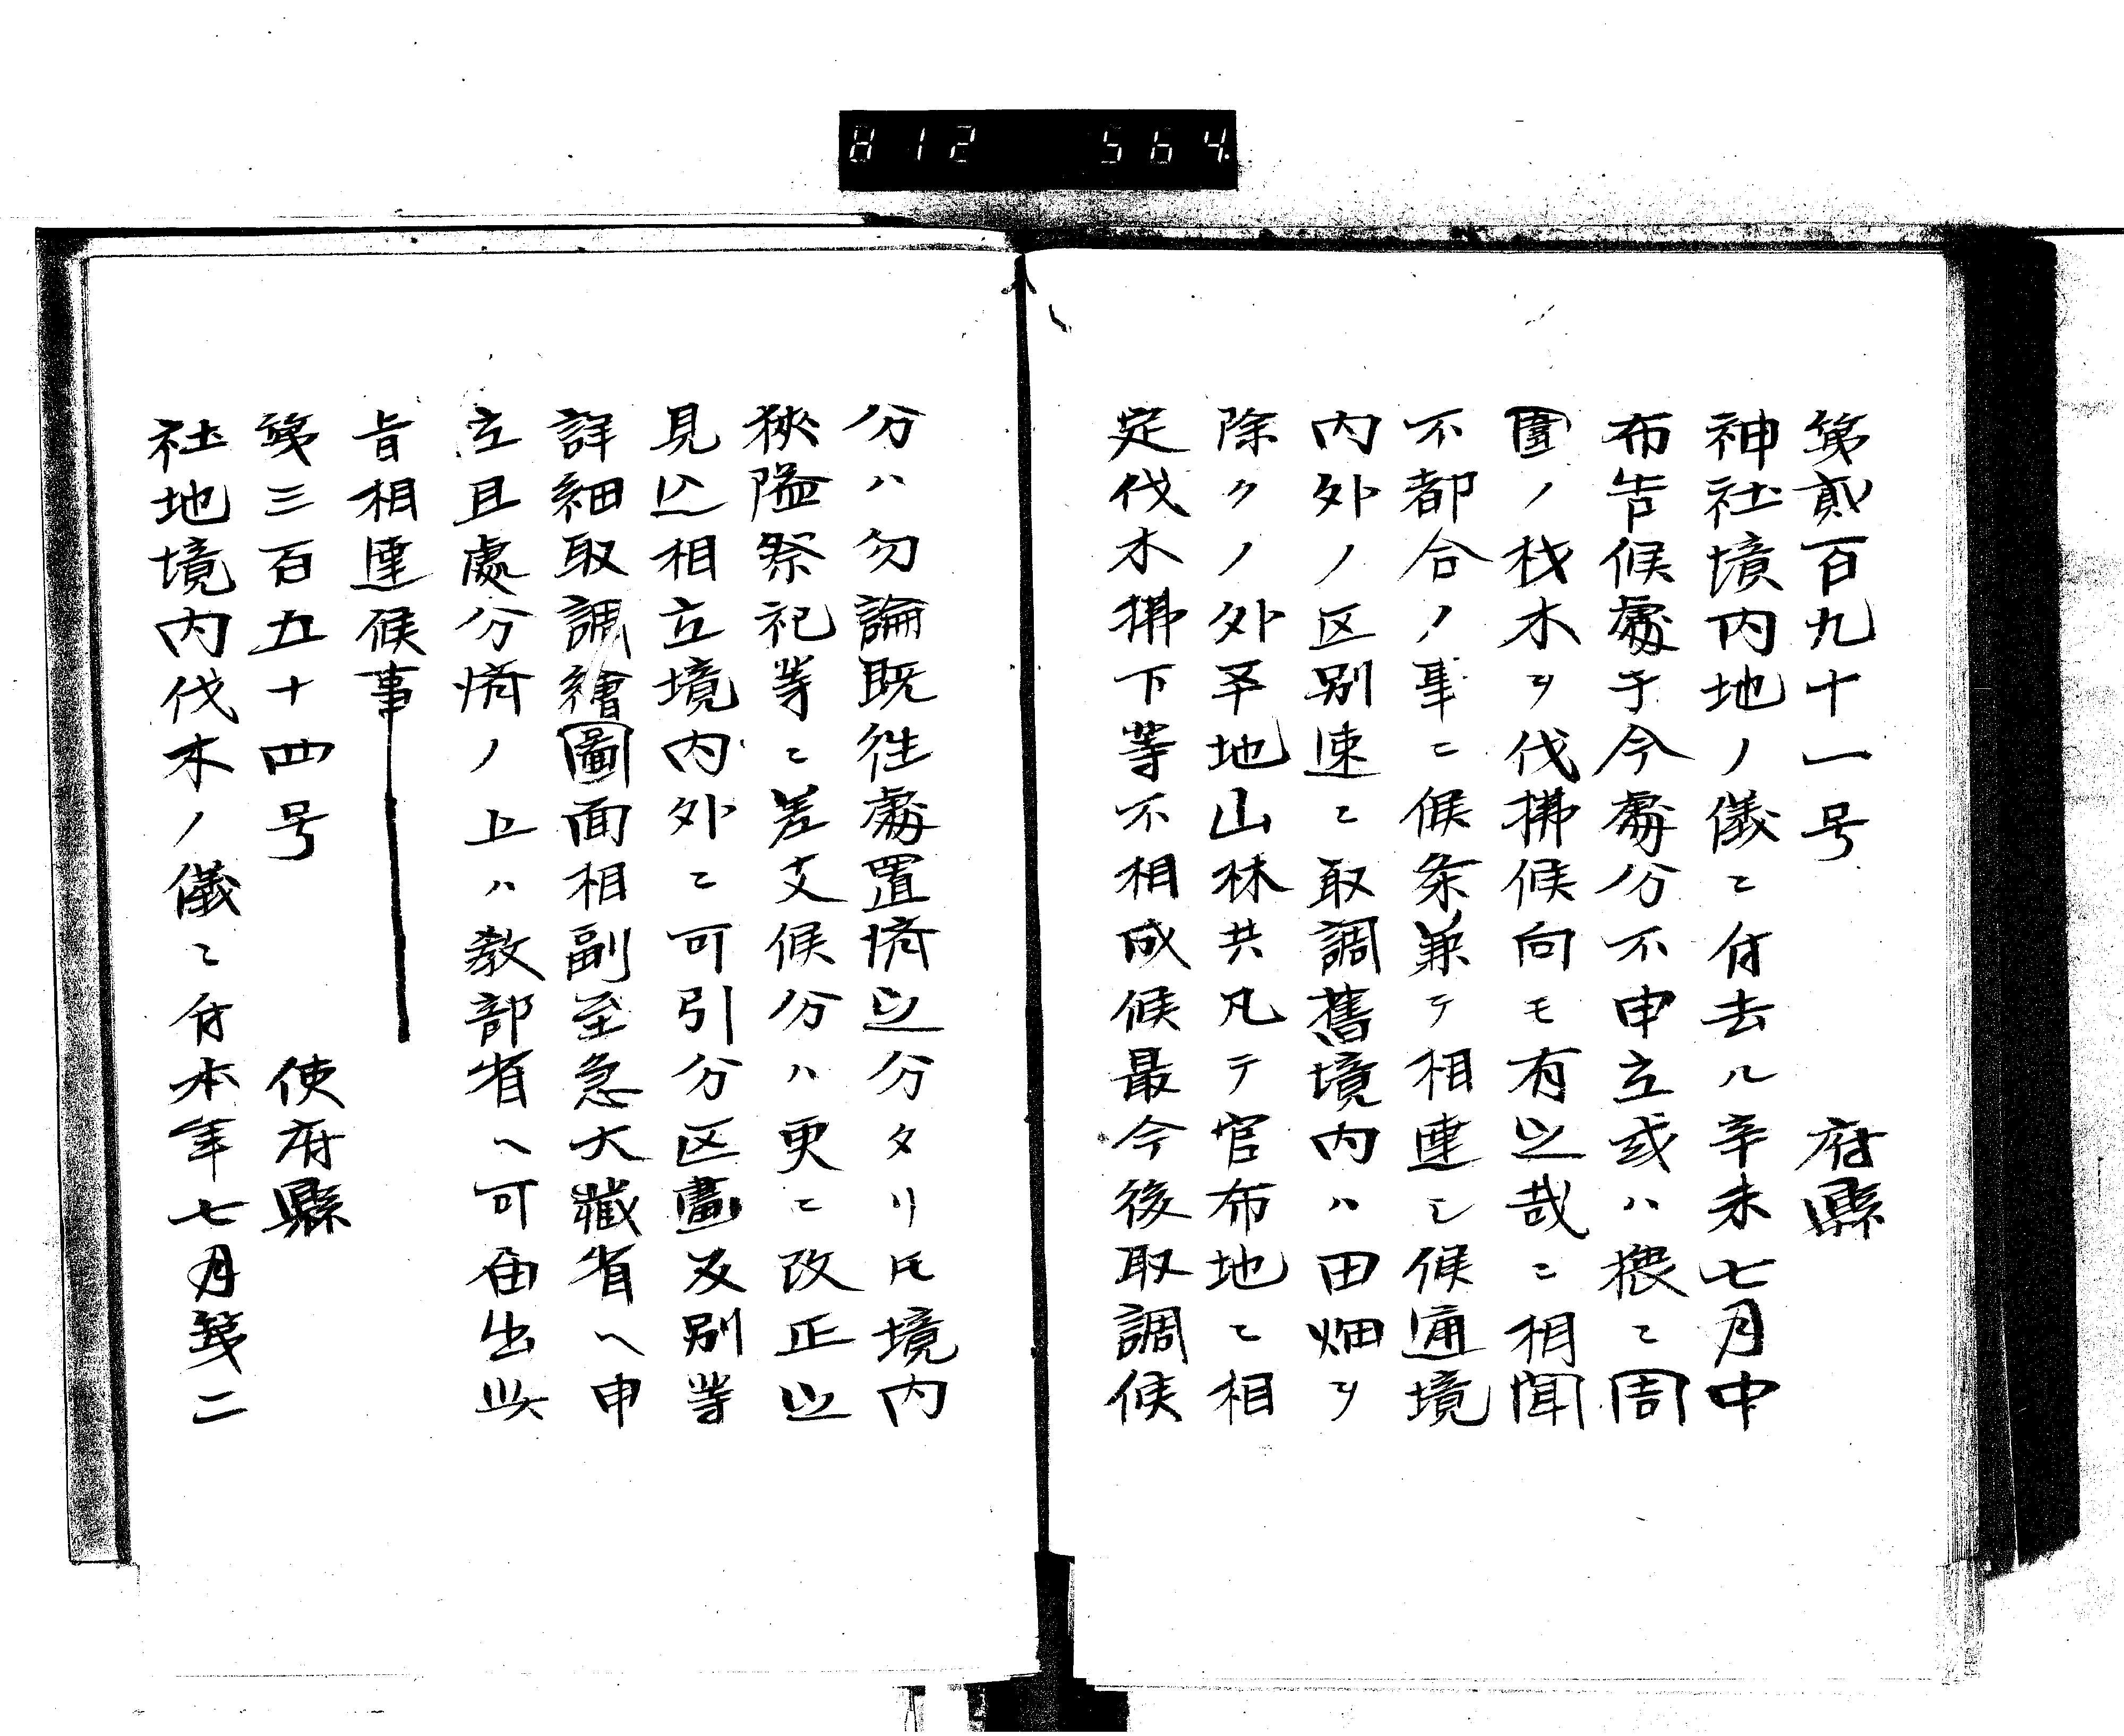 812 564
第貳百九十一号 府縣
神社境内地ノ儀ニ付去ル辛未七月中
布告候處于今處分不申立或ハ猥ニ周
圍ノ材木ヲ伐拂候向モ有之哉ニ相聞
不都合ノ事ニ候条兼テ相達シ候通境
内外ノ区別速ニ取調舊境内ハ田畑ヲ
除クノ外平地山林共凡テ官布地ニ相
定伐木拂下等不相成候最今後取調候
分ハ勿論既徃處置済之分タリ𪜈境内
狹隘祭祀等ニ差支候分ハ更ニ改正之
見込相立境内外ニ可引分区畫及別等
詳細取調繪圖面相副至急大藏省ヘ申
立且處分済ノ上ハ教部省ヘ可届出此
旨相達候事
第三百五十四号 使府縣
社地境内伐木ノ儀ニ付本年七月第二